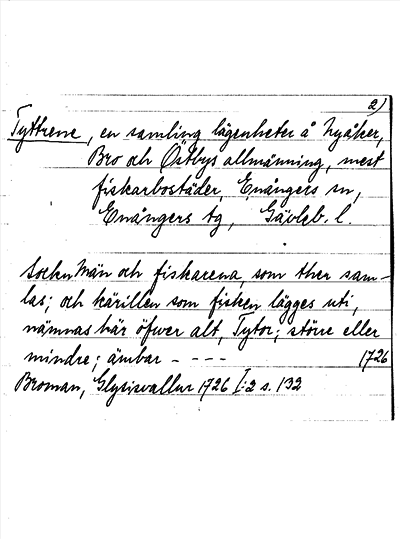 2)
Tyttrene, en samling lägenheter å Nyåker,
Bro och Östbys allmänning, mest
fiskarbostäder, Enångers sn,
Enångers tg, Gävleb. l.
Socknmän och fiskarena, som ther sam-
las; och kärillen som fisken lägges uti,
nämnas här öfwer alt, Tytor; större eller
mindre; ämbar - - - - 1726
Broman, Glysisvallur 1726 I:2 s. 132